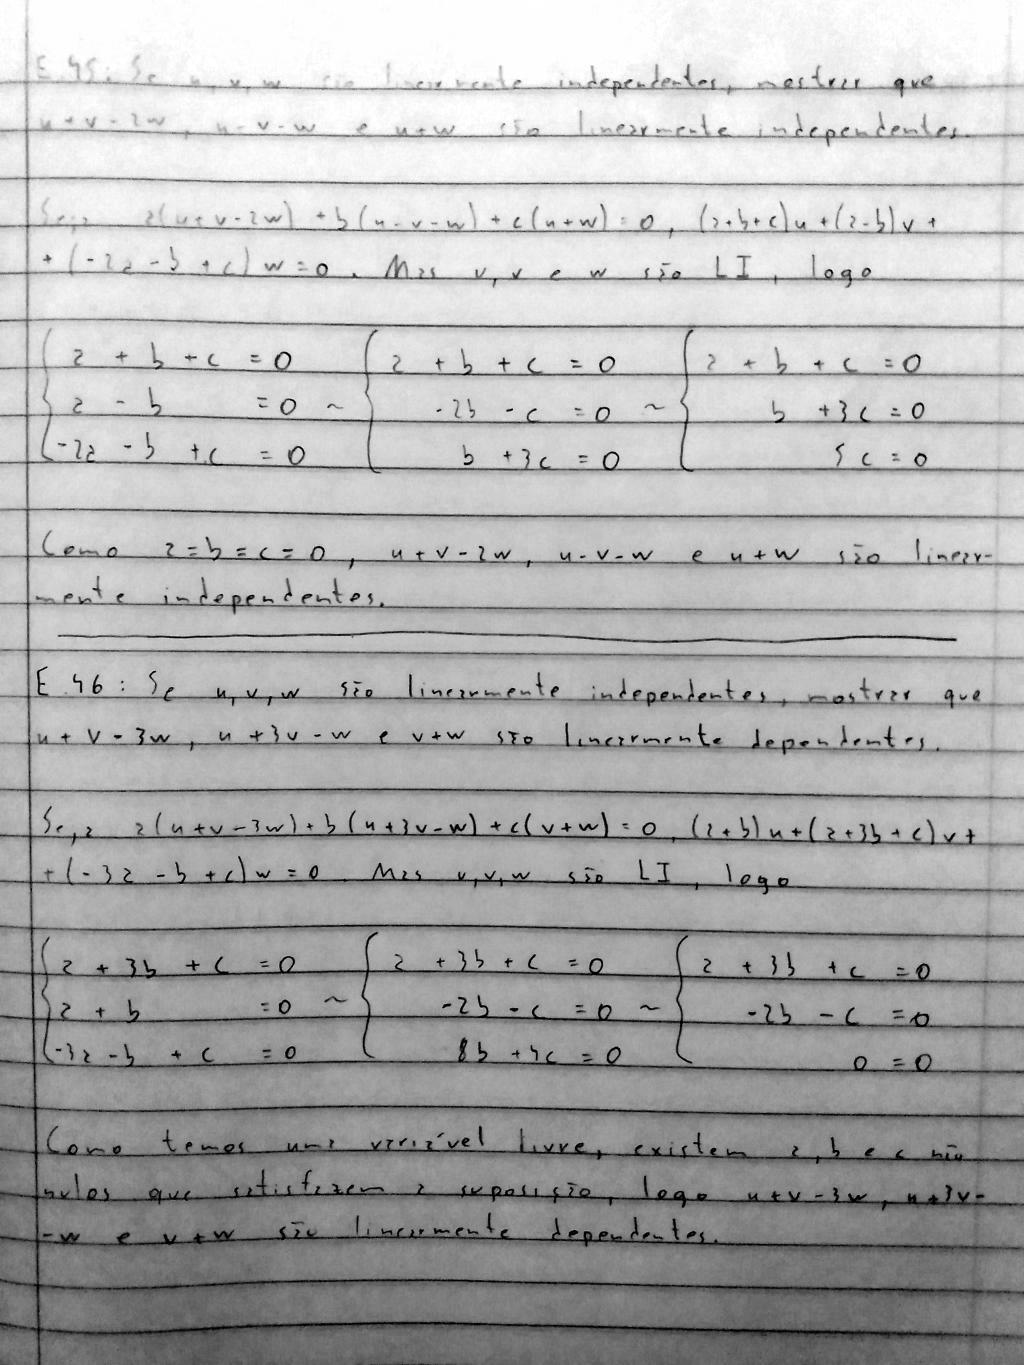 E 45: Se u, v, w são linearmente independentes, mostrar que
u+v-2w, u-v-w e u+w são linearmente independentes.
Seja a(u+v-2w)+b(u-v-w)+c(u+w)=0, (a+b+c)u+(a-b)v+
+(-2a-b+c)w=0. Mas u, v e w são LI, logo
{ a + b + c = 0 { a + b + c = 0 { a + b + c = 0
a - b = 0 ~ -2b - c = 0 ~ b + 3c = 0
-2a - b + c = 0 b + 3c = 0 5c = 0
Como a=b=c=0, u+v-2w, u-v-w e u+w são linear-
mente independentes.
E 46: Se u, v, w são linearmente independentes, mostrar que
u+v-3w, u+3v-w e v+w são linearmente dependentes.
Seja a(u+v-3w)+b(u+3v-w)+c(v+w)=0, (a+b)u+(a+3b+c)v+
+(-3a-b+c)w=0. Mas u, v, w são LI, logo
{ a + 3b + c = 0 { a + 3b + c = 0 { a + 3b + c = 0
a + b = 0 ~ -2b - c = 0 ~ -2b - c = 0
-3a - b + c = 0 8b + 4c = 0 0 = 0
Como temos uma variável livre, existem a, b e c não
nulos que satisfazem a suposição, logo u+v-3w, u+3v-
-w e v+w são linearmente dependentes.